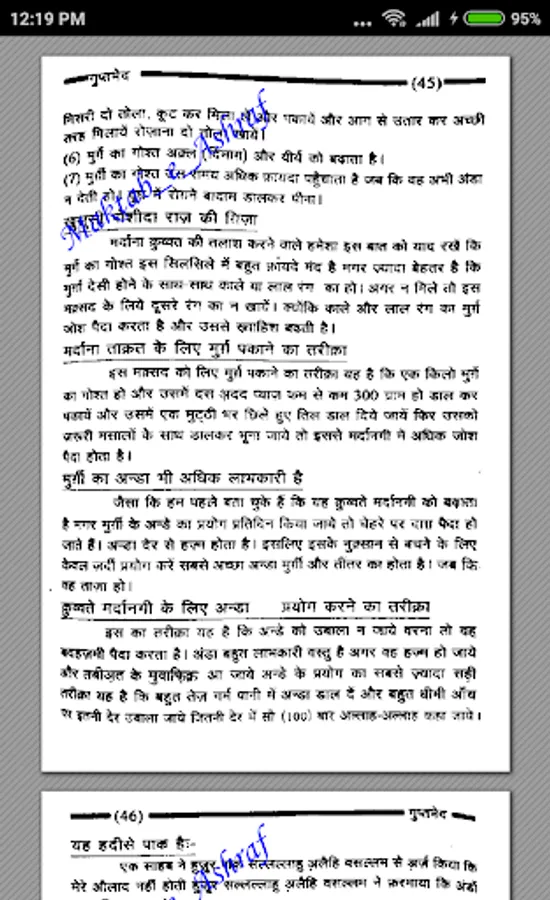 12:19 PM ... 95%
गुप्तभेद (45)
मिसरी दो तोला, कूट कर मिला और पकायें और आग से उतार कर अच्छी
तरह मिलायें रोज़ाना दो तोला खायें।
(6) मुर्ग का गोश्त अक़्ल (दिमाग) और वीर्य को बढ़ाता है।
(7) मुर्गी का गोश्त उस समय अधिक फ़ायदा पहुँचाता है जब कि वह अभी अंडा
न देती हो। में रोग़ने बादाम डालकर पीना।
पोशीदा राज़ की ग़िज़ा
मर्दाना क़ुव्वत की तलाश करने वाले हमेशा इस बात को याद रखें कि
मुर्ग का गोश्त इस सिलसिले में बहुत फ़ायदे मंद है मगर ज़्यादा बेहतर है कि
मुर्ग़ा देसी होने के साथ-साथ काले या लाल रंग का हो। अगर न मिले तो इस
मक़सद के लिये दूसरे रंग का न खायें। क्योंकि काले और लाल रंग का मुर्ग
जोश पैदा करता है और उससे ख़्वाहिश बढ़ती है।
मर्दाना ताक़त के लिए मुर्ग़ पकाने का तरीक़ा
इस मक़सद को लिए मुर्ग़ पकाने का तरीक़ा यह है कि एक किलो मुर्ग
का गोश्त हो और उसमें दस अदद प्याज़ कम से कम 300 ग्राम हो डाल कर
पकायें और उसमें एक मुट्ठी भर छिले हुए तिल डाल दिये जायें फिर उसको
ज़रूरी मसालों के साथ डालकर भूना जाये तो इससे मर्दानगी में अधिक जोश
पैदा होता है।
मुर्ग़ी का अन्डा भी अधिक लाभकारी है
जैसा कि हम पहले बता चुके हैं कि यह क़ुव्वते मर्दानगी को बढ़ाता
है मगर मुर्गी के अन्डे का प्रयोग प्रतिदिन किया जाये तो चेहरे पर दाग़ पैदा हो
जाते हैं। अन्डा देर से हज़्म होता है। इसलिए इसके नुक़्सान से बचने के लिए
केवल ज़र्दी प्रयोग करें सबसे अच्छा अन्डा मुर्गी और तीतर का होता है। जब कि
वह ताज़ा हो।
क़ुव्वते मर्दानगी के लिए अन्डा प्रयोग करने का तरीक़ा
इस का तरीक़ा यह है कि अन्डे को उबाला न जाये वरना तो वह
बदहज़मी पैदा करता है। अंडा बहुत लाभकारी वस्तु है अगर वह हज़्म हो जाये
और तबीअत के मुवाफ़िक़ आ जाये अन्डे के प्रयोग का सबसे ज़्यादा सही
तरीक़ा यह है कि बहुत तेज़ गर्म पानी में अन्डा डाल दें और बहुत धीमी आँच
पर इतनी देर उबाला जाये जितनी देर में सौ (100) बार अल्लाह-अल्लाह कहा जाये।
Maktab_e_Ashraf
(46) गुप्तभेद
यह हदीसे पाक है:-
एक साहब ने हुज़ूर सल्लल्लाहु अलैहि वसल्लम से अर्ज़ किया कि
मेरे औलाद नहीं होती हुज़ूर सल्लल्लाहु अलैहि वसल्लम ने फ़रमाया कि अंडों
Ashraf